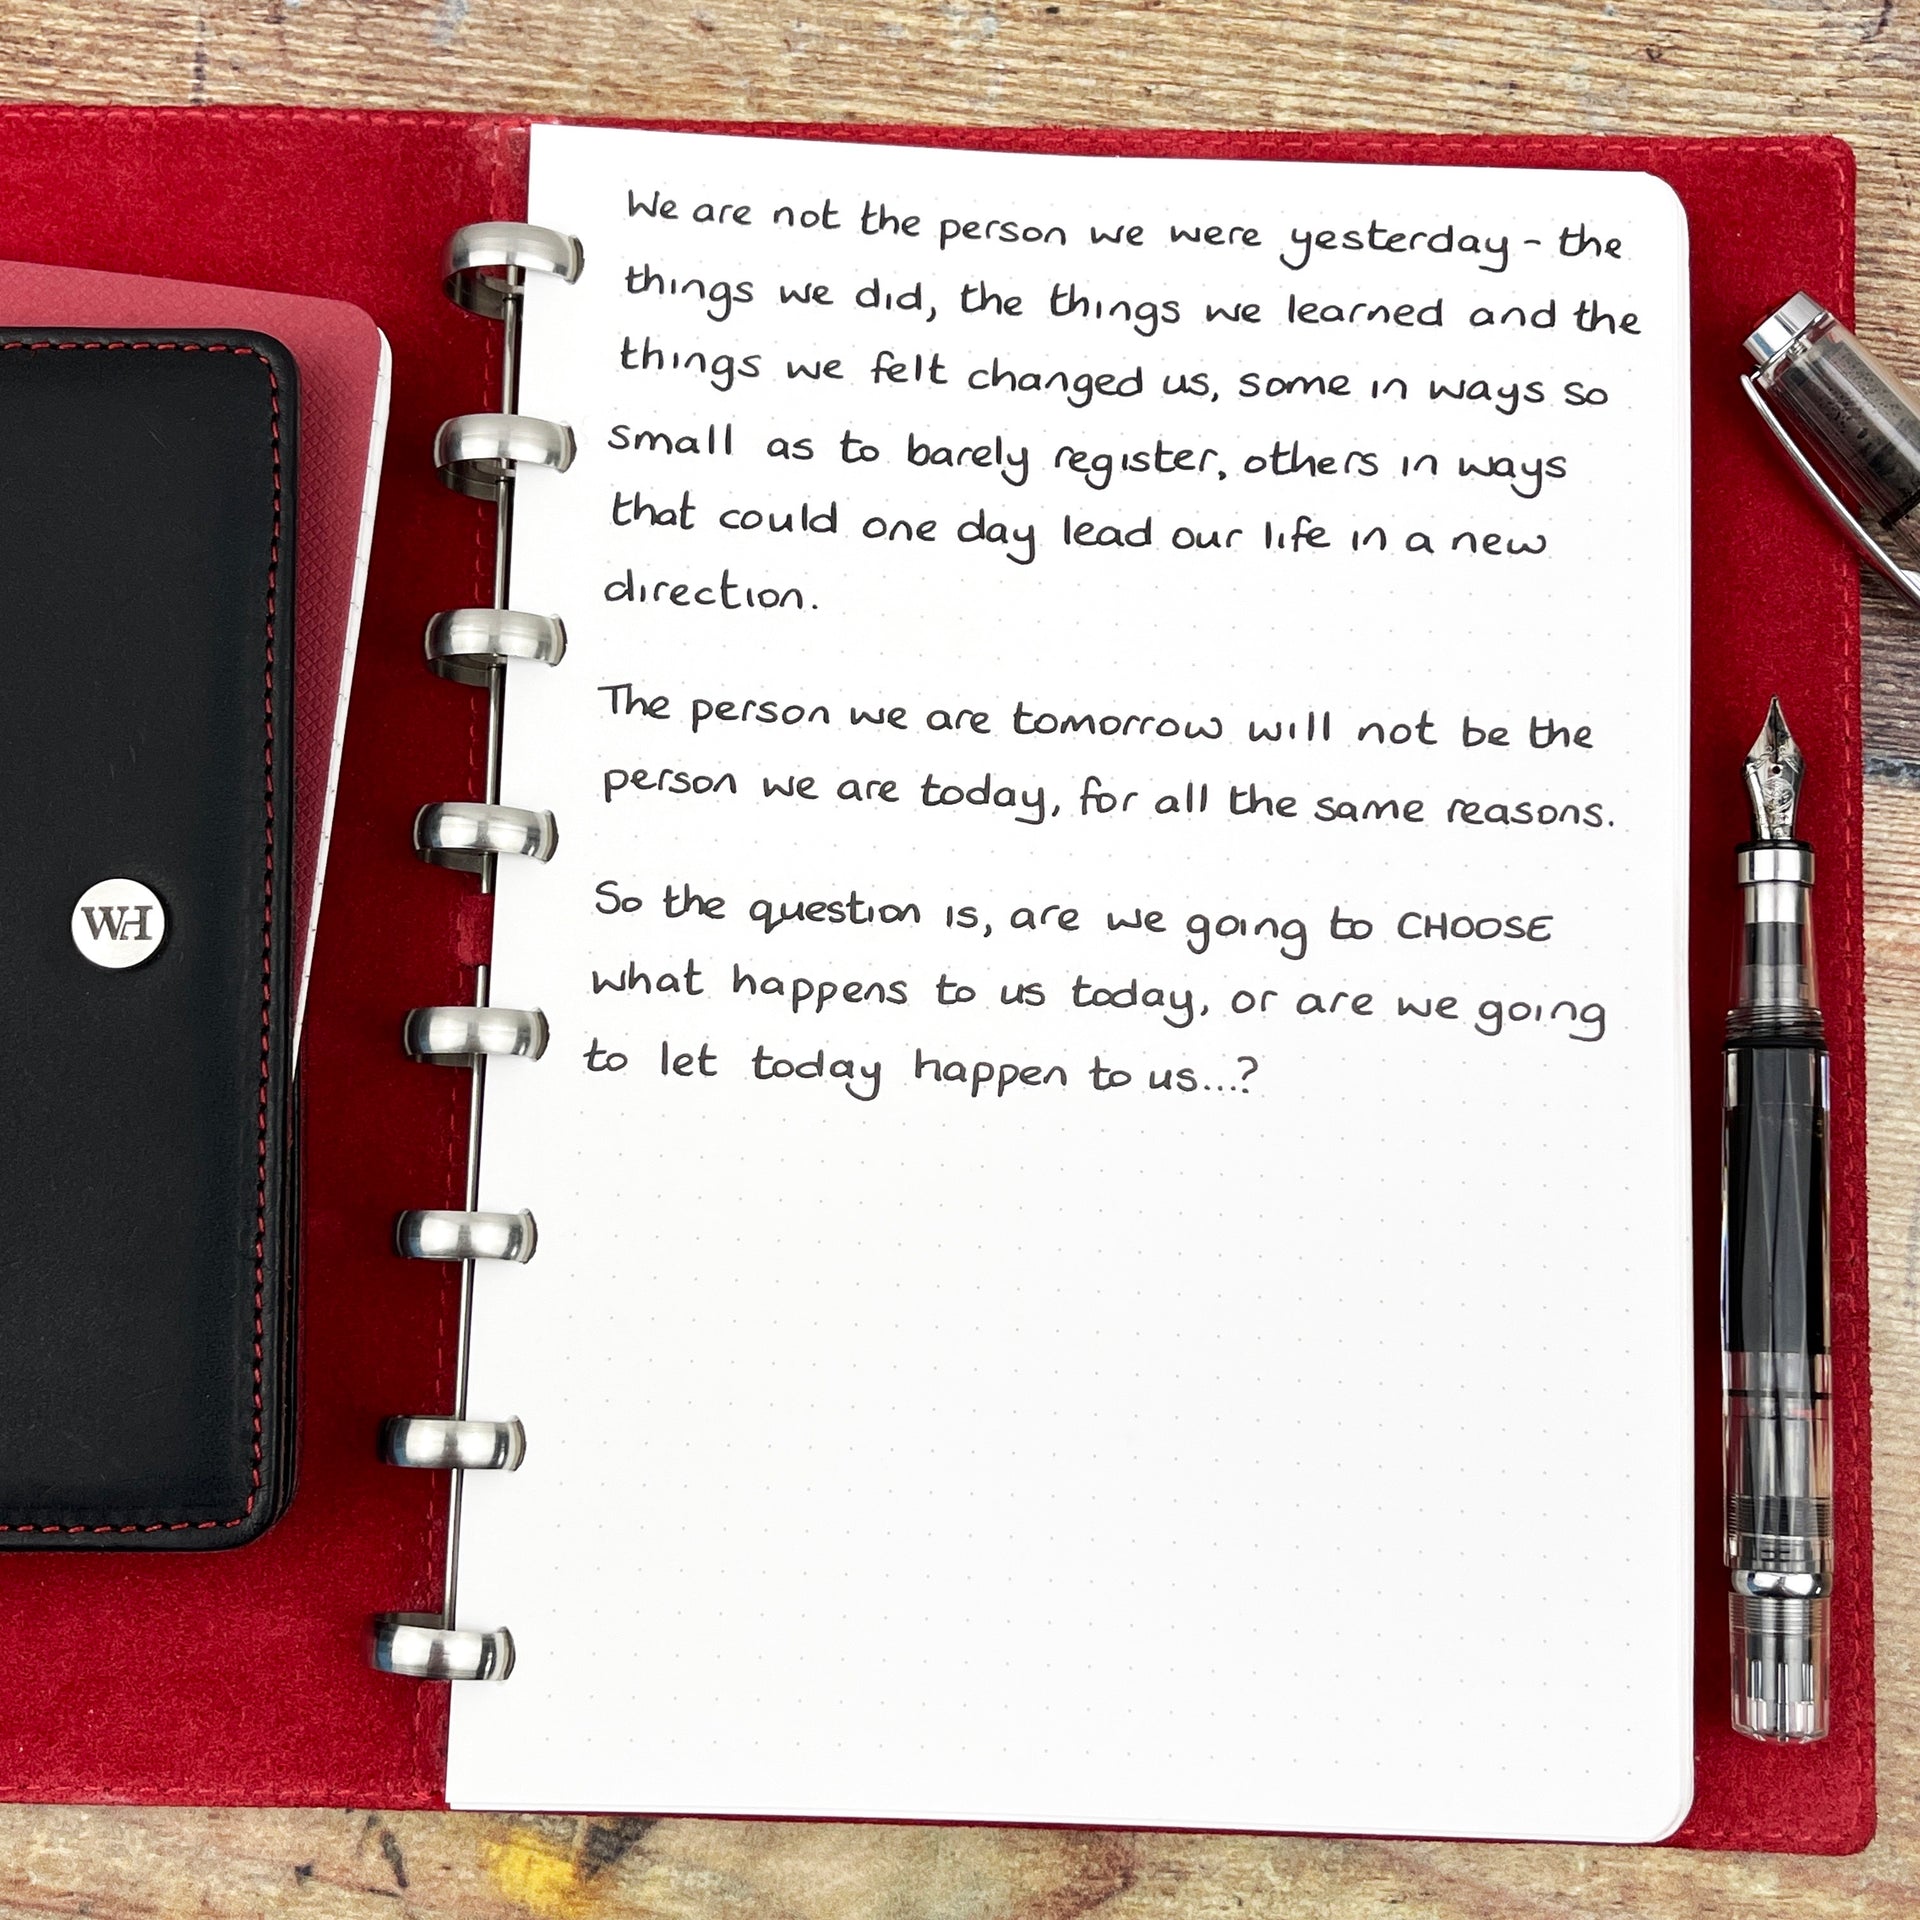 We are not the person we were yesterday - the
things we did, the things we learned and the
things we felt changed us, some in ways so
small as to barely register, others in ways
that could one day lead our life in a new
direction.
The person we are tomorrow will not be the
person we are today, for all the same reasons.
So the question is, are we going to CHOOSE
what happens to us today, or are we going
to let today happen to us...?
WH